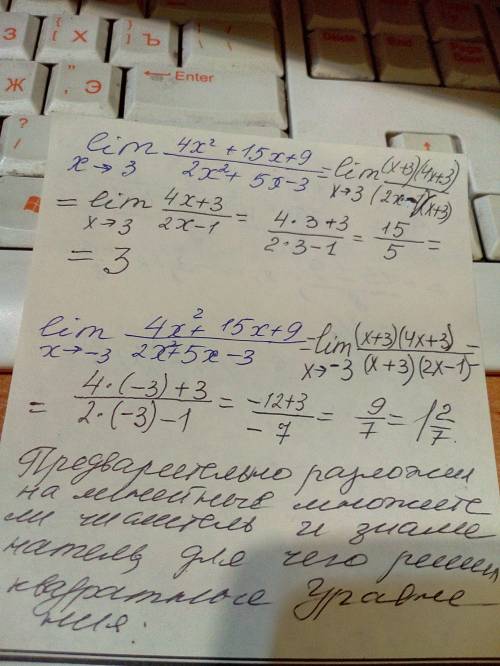 З
Х
{
[
}
]
Ъ
Delete
End
Page Down
Ж
Э
Enter
?
/
lim x→3 (4x² + 15x + 9)/(2x² + 5x - 3) = lim x→3 (x+3)(4x+3)/(2x-1)(x+3)
= lim x→3 (4x+3)/(2x-1) = (4·3+3)/(2·3-1) = 15/5 =
= 3
lim x→-3 (4x² + 15x + 9)/(2x² + 5x - 3) = lim x→-3 (x+3)(4x+3)/(x+3)(2x-1) =
= (4·(-3)+3)/(2·(-3)-1) = (-12+3)/-7 = 9/7 = 1 2/7.
Предварительно разложим
на линейные множите
ли числитель и знаме
натель, для чего решим
квадратные уравне
ния: